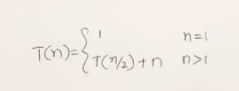 T(n) = { 1 n=1
T(n/2) + n n>1